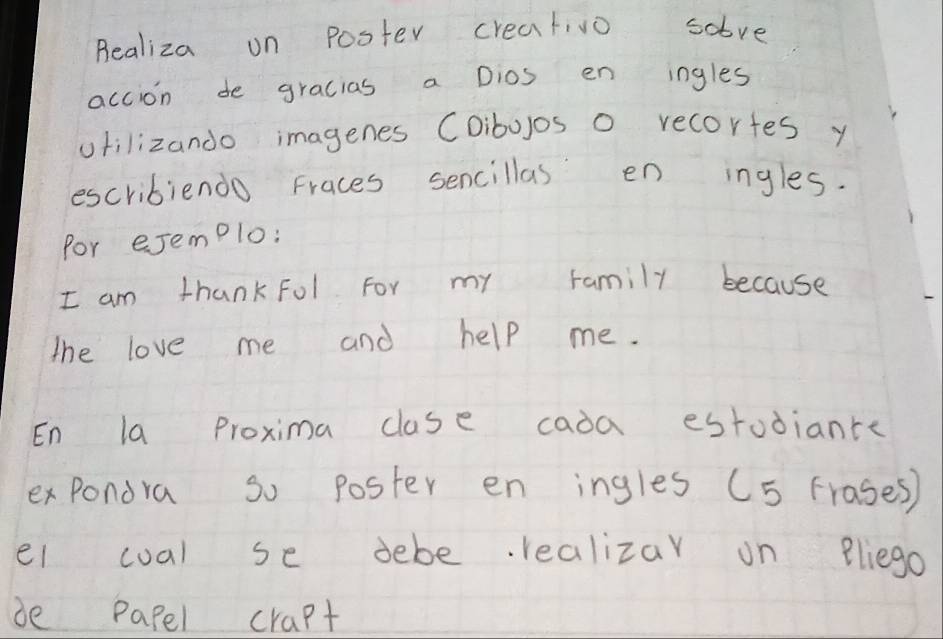 Realiza un Poster creativo sobre
acción de gracias a Dios en ingles
utilizando imagenes (Dibujos o recortes y
escribiendo Fraces sencillas en ingles.
Por ejemplo:
I am thankFul For my Family because
the love me and help me.
En la Proxima clase cada estudiante
exPondra su Poster en ingles (5 Frases)
el cual se debe realizar un Pliego
de Papel crapt